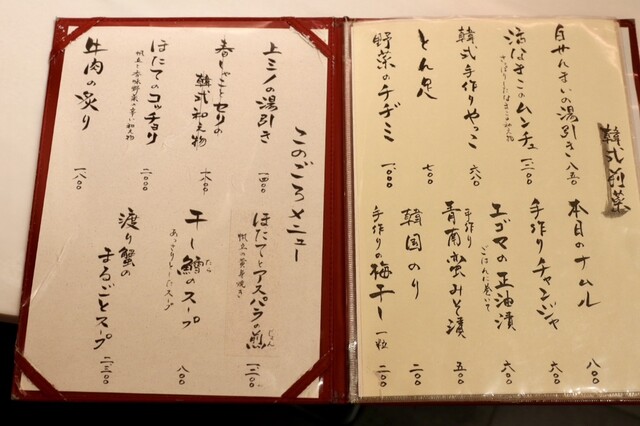 韓式前菜
白せんまいの湯引き 八五〇
活なまこのムンチュ 一二〇〇
韓式手作りやっこ 六八〇
とん足 七〇〇
野菜のチヂミ 一〇〇〇
本日のナムル 八〇〇
手作りチャンジャ 六〇〇
エゴマの正油漬 六〇〇
ごはんに巻いて
手作り
青南蛮みそ漬 五〇〇
韓国のり 二〇〇
手作りの梅干し 一粒 二〇〇
このごろメニュー
上ミノの湯引き 一四〇〇
春しゃことセリの
韓式和え物
ほたてのコッチョリ 二〇〇〇
帆立と香味野菜の辛い和え物
牛肉の炙り 一八〇〇
ほたてとアスパラの煎 一二〇〇
じょん
帆立の黄身焼き
干し鱈のスープ 八〇〇
たら
あっさりとしたスープ
渡り蟹の
まるごとスープ 二三〇〇